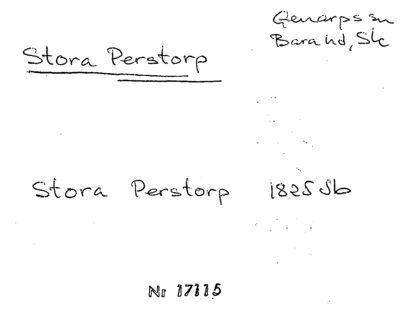 Genarps sn
Bara hd, Sk
Stora Perstorp
Stora Perstorp 1825 Sb
Nr 17115